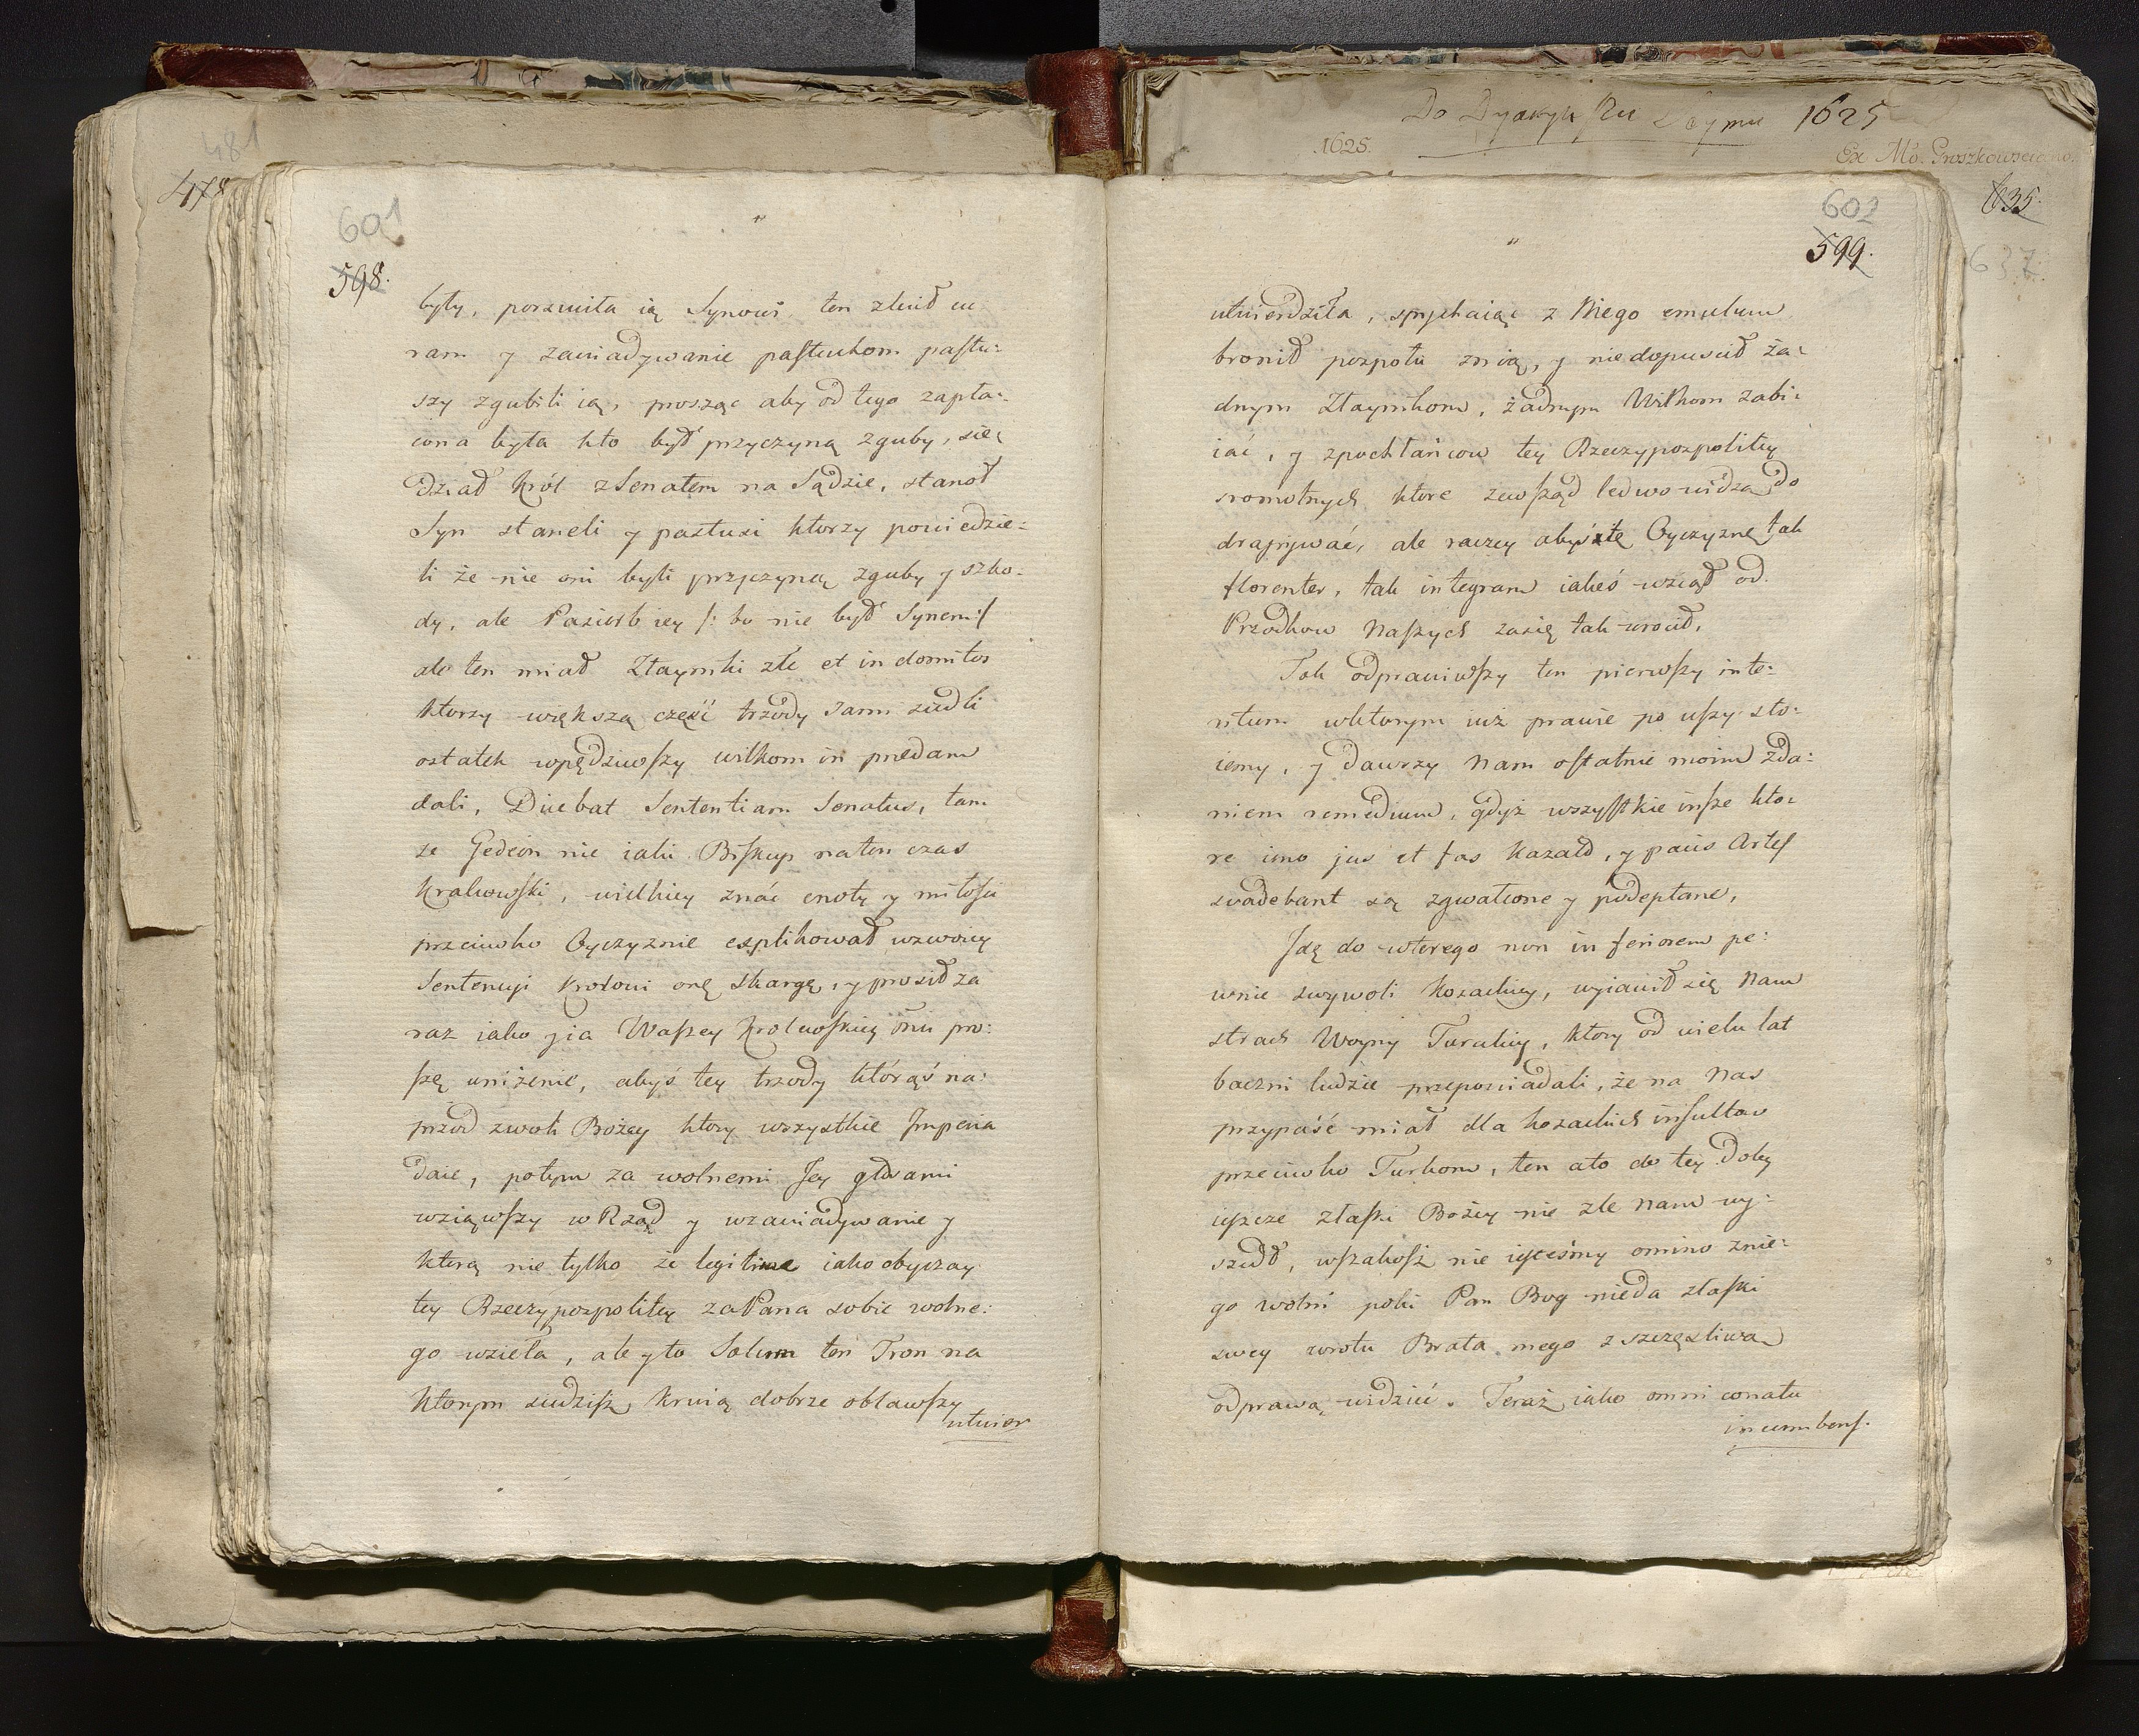 481
478
601
598.
były, porucziła ią Synowi ten zlecił cu
ram y zawiadywanie pastuchom pastu:
szy zgubili ią, prosząc aby od tego zapła:
cona była kto był przyczyną zguby, sie:
dział Król z Senatem na Sądzie, stanoł
Syn staneli y pastusi ktorzy powiedzie:
li że nie oni byli przyczyną zguby y szko:
dy, ale Pasierb iey /: bo nie był Synem :/
ale ten miał Ztaymki złe et indomitos
ktorzy większą część trzody sami ziedli
ostatek wpędziwszy wilkom in prædam
dali, Ducebat Sententiam Senatus, tam
ze Gedeon nie iaki Biskup na ten czas
Krakowski, wielkiey znać cnoty y miłości
przeciwko Oyczyznie explikował wzwoiey
Sentencyi Krolowi onę skargę, y prosił za
raz iako y ia Waszey Krolewskiey Mci pro:
szę uniżenie, abyś tey trzody którąś na:
przod z woli Bożey ktory wszystkie Imperia
daie, potym za wolnemi Jey głosami
wziąwszy w Rząd y wzawiadywanie y
ktorą nie tylko że legitime iako obyczay
tey Rzeczypospolitey za Pana sobie wolne:
go wzieła, ale y to Solium ten Tron na
ktorym siedzisz krwią dobrze oblawszy
utwier
Do Dyaryuszu Seymu 1625
1625.
Ex Mo. Proszkowsciano.
635.
637.
602
599.
utwierdziła, spychaiąc z Niego emulum
bronił pospołu znią, y niedopuscił ża:
dnym Ztaymkom, żadnym Wilkom zabi:
iać, y zpochłańcow tey Rzeczypospolitey
sromotnych ktore zewsząd ledwo widza do
drapywać, ale raczey abyś tę Oyczyznę tak
florenter, tak integram iakeś wziął od
Przodkow Naszych zasię tak wrocił.
Tak odprawiwszy ten pierwszy inte:
ritum wktorym iuż prawie po uszy sto:
iemy, y dawszy Nam ostatnie moim zda:
niem remedium, gdyż wszystkie insze kto:
re imo jus et fas kazało, y pacis Artes
svadebant są zgwałcone y podeptane,
Idę do wtorego non inferiorem pe:
wnie swywoli kozackiey, wyiawił się Nam
strach Woyny Tureckiey, ktory od wielu lat
baczni ludzie przepowiadali, że na Nas
przypaść miał dla kozackich insultow
przeciwko Turkom, ten ato do tey Doby
ieszcze złaski Bożey nie zle Nam wy:
szedł, wszakosz nie iesteśmy omino znie:
go wolni poki Pan Bog nieda złaski
swey wrotu Brata mego z szczęsliwą
odprawą widzieć. Teraz iako omni conatu
incumbens.